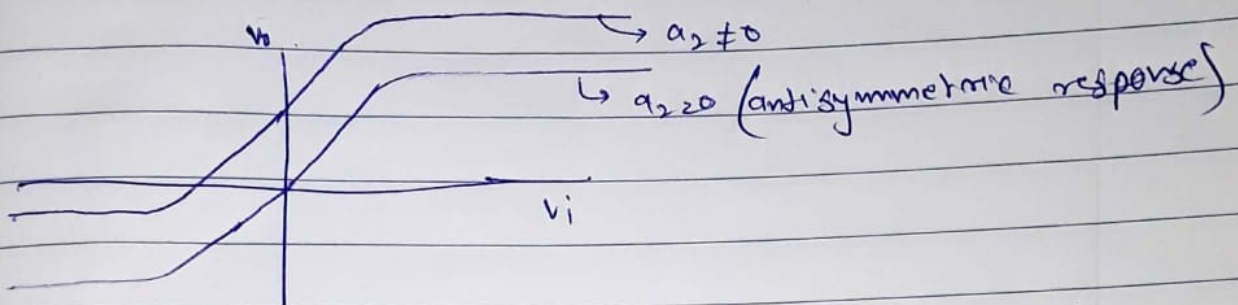 V₀
↳ a₂ ≠ 0
↳ a₂ = 0 (antisymmetric response)
Vi